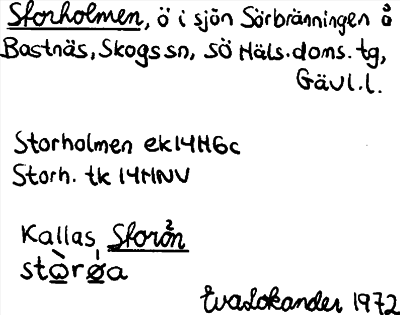 Storholmen, ö i sjön Sörbränningen å
Bastnäs, Skogs sn, SÖ Häls. doms. tg,
Gävl. l.
Storholmen ek 14H6c
Storh. tk 14HNV
Kallas Storön
stòrǿa
Eva Lokander 1972